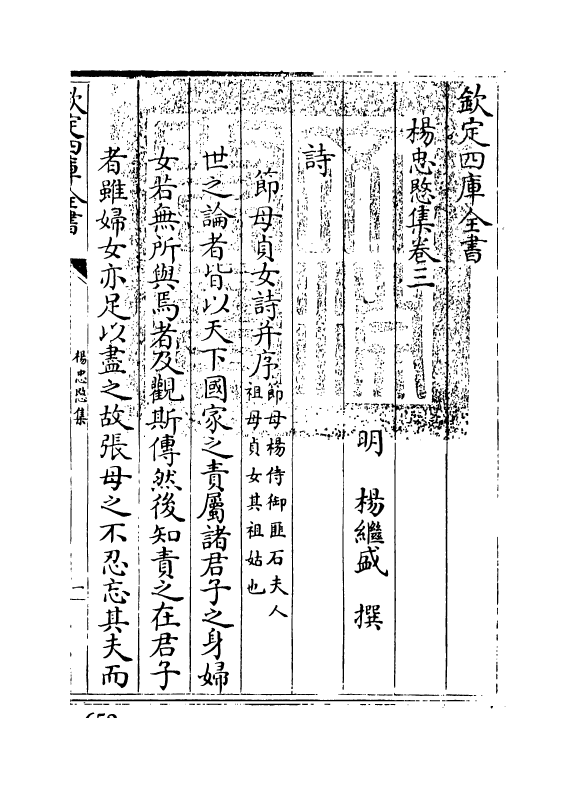 欽定四庫全書
楊忠愍集卷三
明 楊繼盛 撰
詩
節母貞女詩并序節母楊侍御匪石夫人
祖母貞女其祖姑也
世之論者皆以天下國家之責屬諸君子之身婦
女若無所與焉者及觀斯傳然後知責之在君子
者雖婦女亦足以盡之故張母之不忍忘其夫而
欽定四庫全書
楊忠愍集
一